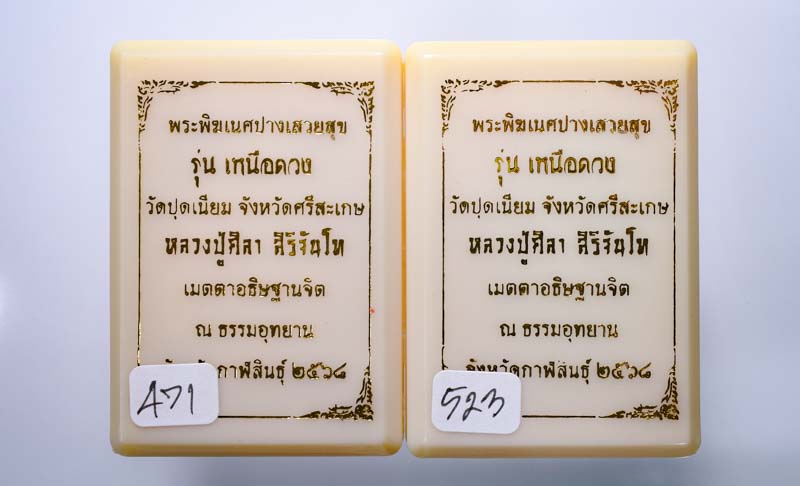 พระพิฆเนศปางเสวยสุข
รุ่น เหนือดวง
วัดปุดเนียม จังหวัดศรีสะเกษ
หลวงปู่ศิลา สิริจันโท
เมตตาอธิษฐานจิต
ณ ธรรมอุทยาน
กาฬสินธุ์ ๒๕๖๘
471
พระพิฆเนศปางเสวยสุข
รุ่น เหนือดวง
วัดปุดเนียม จังหวัดศรีสะเกษ
หลวงปู่ศิลา สิริจันโท
เมตตาอธิษฐานจิต
ณ ธรรมอุทยาน
จังหวัดกาฬสินธุ์ ๒๕๖๘
523